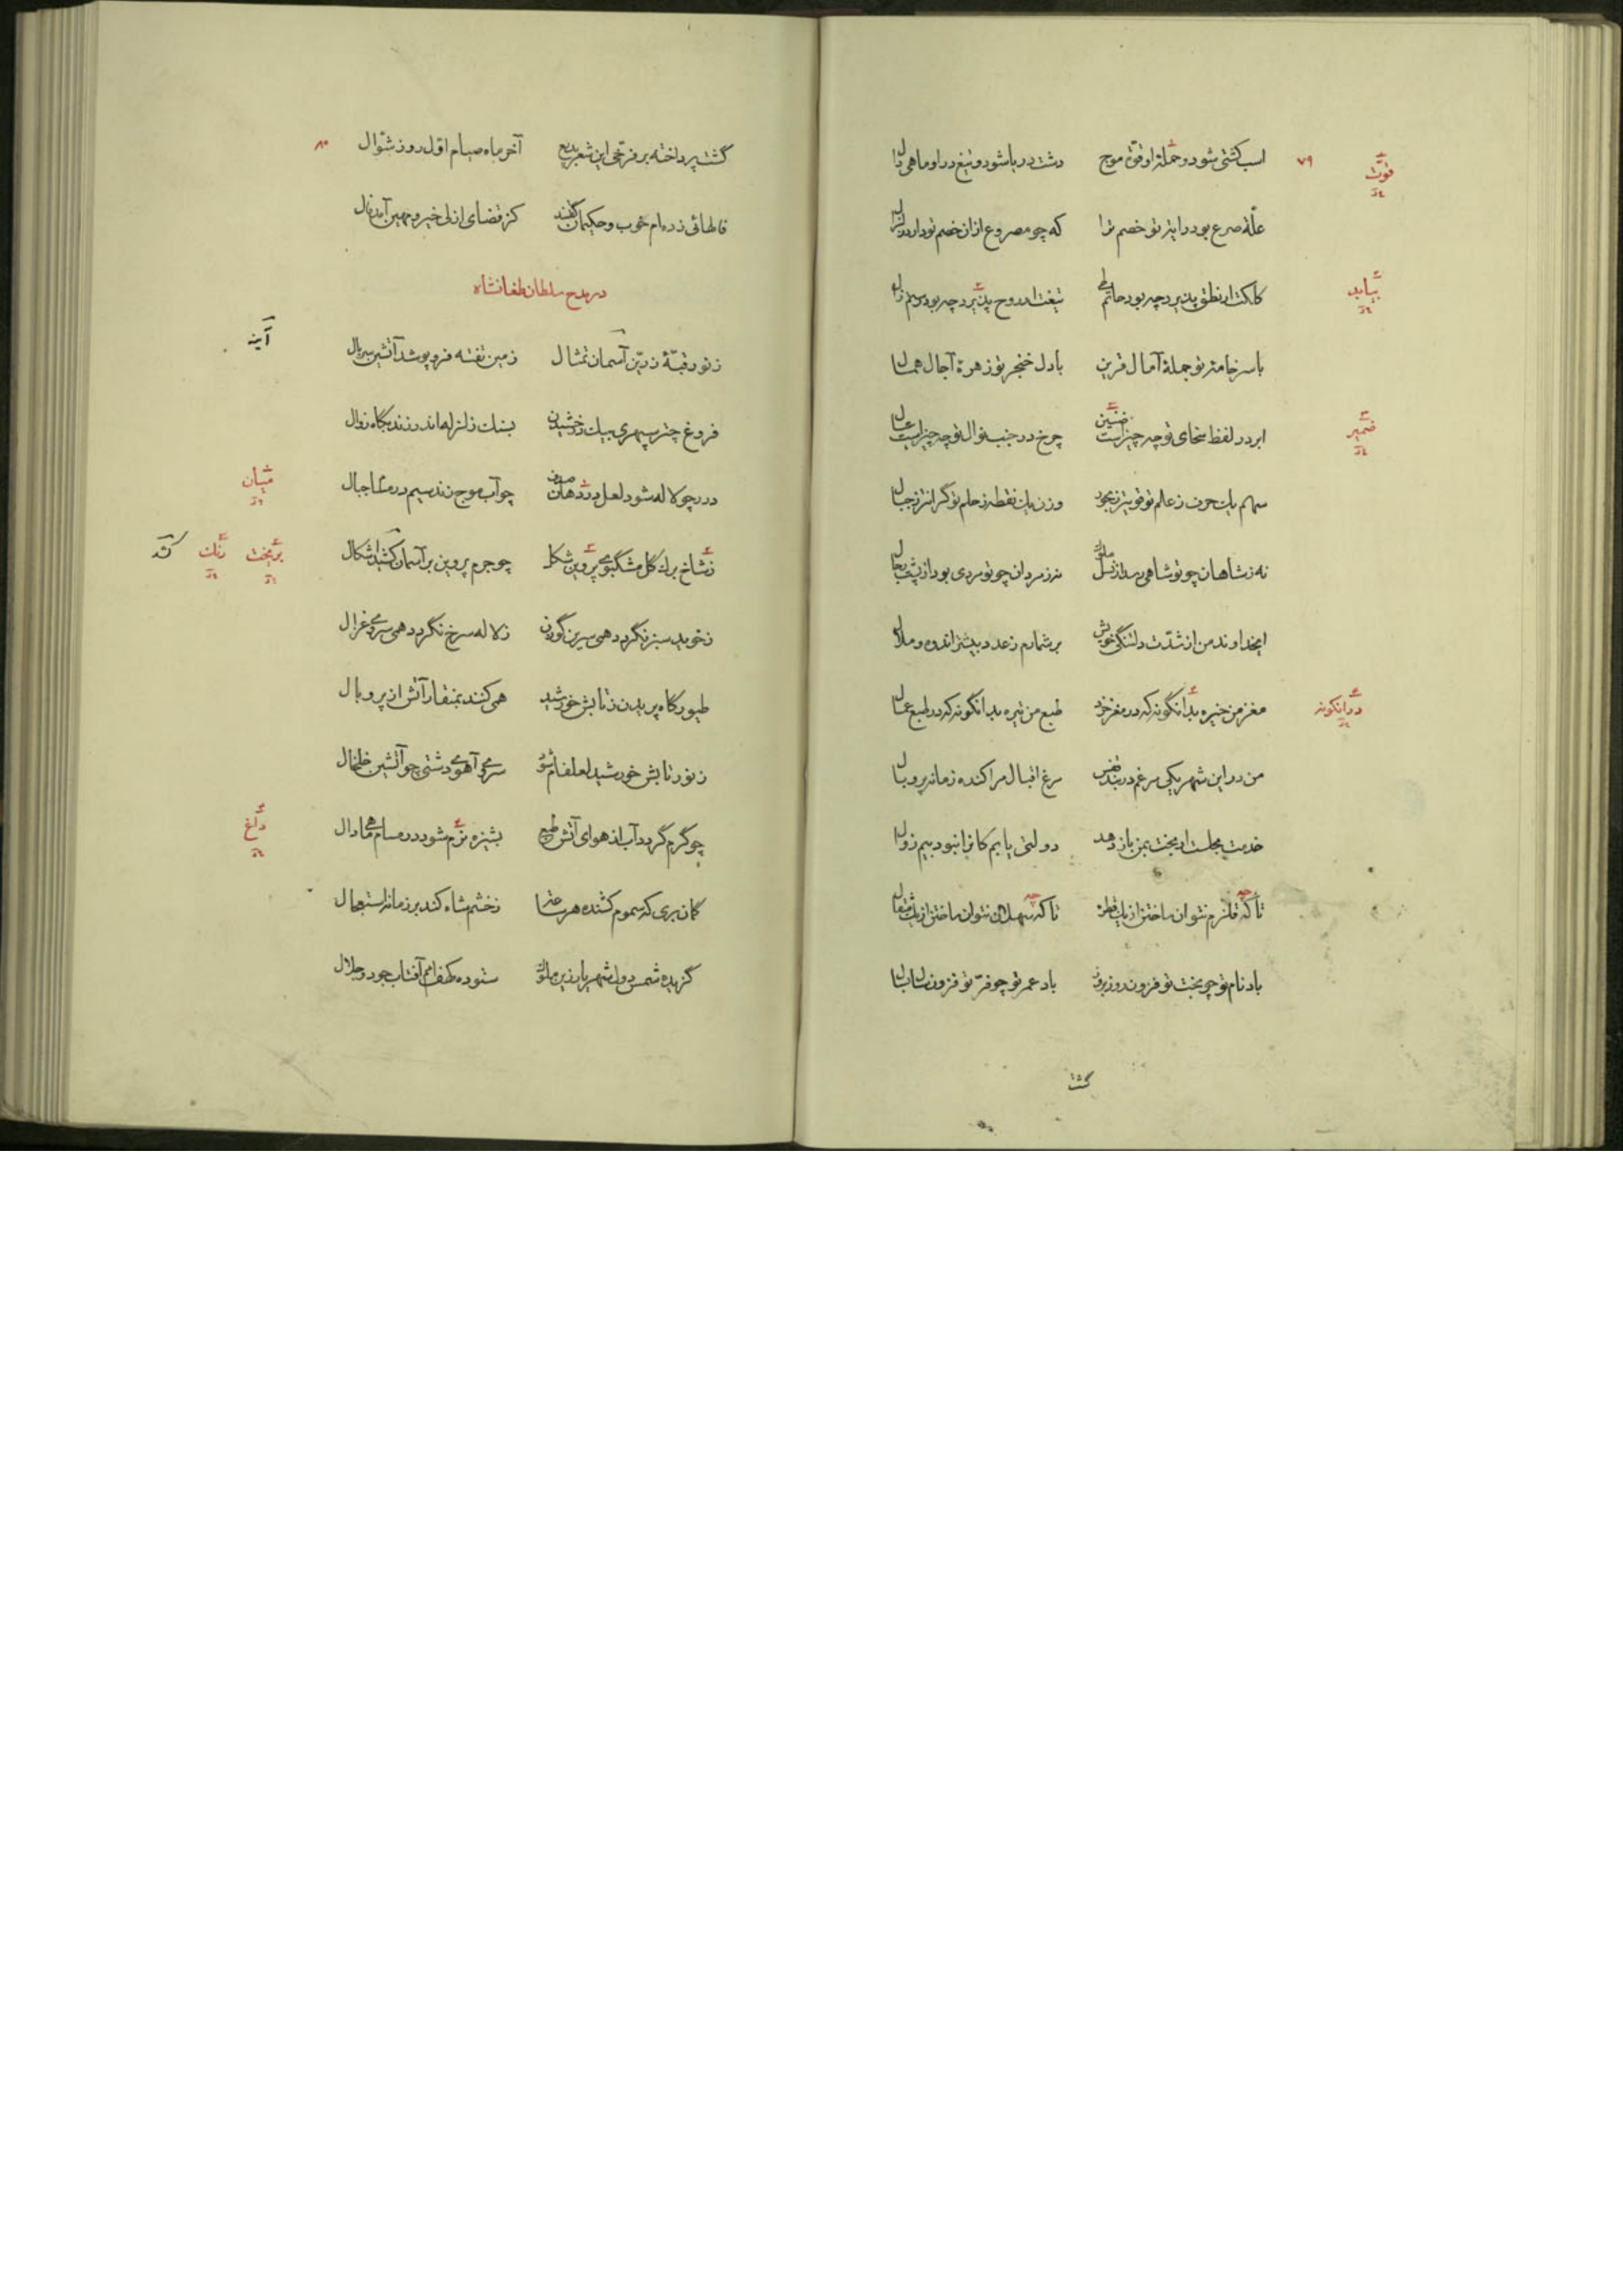 اسب کشتی شود و حملهٔ او قوّت موج دشت دریا شود و تیغ در او ماهی دال
۷۹
قوّت
علّة صرع بود در ابر تو خصم ترا که چو مصروع ازان خصم تو دارد زلزال
کلکت ار نطق پذیرد چه بود حاتم طی تیغت ار روح پذیرد چه بود رستم زال
بیابد
با سر خامهٔ تو جملهٔ آمال قرین با دل خنجر تو زهرهٔ آجال همال
ابر در لفظ سخای تو چه چیز است ضنین چرخ در جنب نوال تو چه چیز است عیال
ضمیر
سهم یک حرف ز علم تو قویتر ز بحور وزن یک نقطه ز حلم تو گرانتر ز جبال
نه ز شاهان چو تو شاهی رسد از نسل ملوک نه ز مردان چو تو مردی بود از پشت رجال
ایخداوند من از شدّت دلتنگی خویش بر شمارم ز عدد بیشتر اندوه و ملال
مغز من خیره بدانگونه که در مغز خرد طبع من تیره بدانگونه که در طبع
درانگونه
من در این شهر یکی مرغم در بند قفس مرغ اقبال مرا کنده زمانه پر و بال
خدمت مجلست ار بخت بمن باز دهد دولتی یابم کانرا نبود بیم زوال
تا که قلزم نتوان ساختن از یک قطره تا که سهلان نتوان ساختن از یک مثقال
باد نام تو چو بخت تو فزون روز بروز باد عمر تو چو فرّ تو فزون سال بسال
گشت
گشت پرداخته بر فرّخی این شعر بدیع آخر ماه صیام اوّل روز شوّال
۸۰
فالهائی زده‌ام خوب و حکیمان گفتند کز قضای ازلی خیر و بهین آمد فال
در مدح سلطان طغانشاه
ز نور قبّهٔ زرّین آسمان تمثال زمین تفته فرو پوشد آتشین سربال
آینه
فروغ چتر سپهری بیک درخشیدن بسنک زلزله اندر زند بگاه زوال
درر چو لاله شود لعل در دهان صدف چو آب موج زند سیم در جبال
میان
ز شاخ برک گل مشگبوی پروین شکل چو جرم پروین بر آسمان کشید اشکال
بریخت رنک کند
ز خوید سبز نگردد همی سرین گوزن ز لاله سرخ نگردد همی سروی غزال
طیور گاه پریدن ز تابش خورشید همی کنند بمنقار آتش از پر و بال
ز نور تابش خورشید لعلفام شود سروی آهوی دشتی چو آتشین خلخال
چو گرم گردد آب از هوای آتش طبع بشیزه نرم شود در مسام ماهی دال
داغ
گمان بری که سموم کشنده هر ساعت ز خشم شاه کند بر زمانه استعجال
گزیده شمس دول شهریار زین ملوک ستوده کهف امم آفتاب جود و جلال